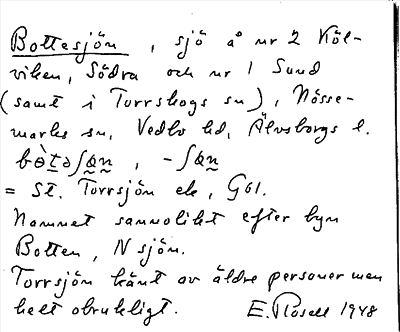 Bottesjön, sjö å nr 2 Köl-
viken, Södra och nr 1 Sund
(samt i Torrskogs sn), Nösse-
marks sn, Vedbo hd, Älvsborgs l.
= St. Torrsjön ek, G61.
Namnet sannolikt efter byn
Botten, N sjön.
Torrsjön känt av äldre personer men
helt obrukligt. E. Rosell 1948